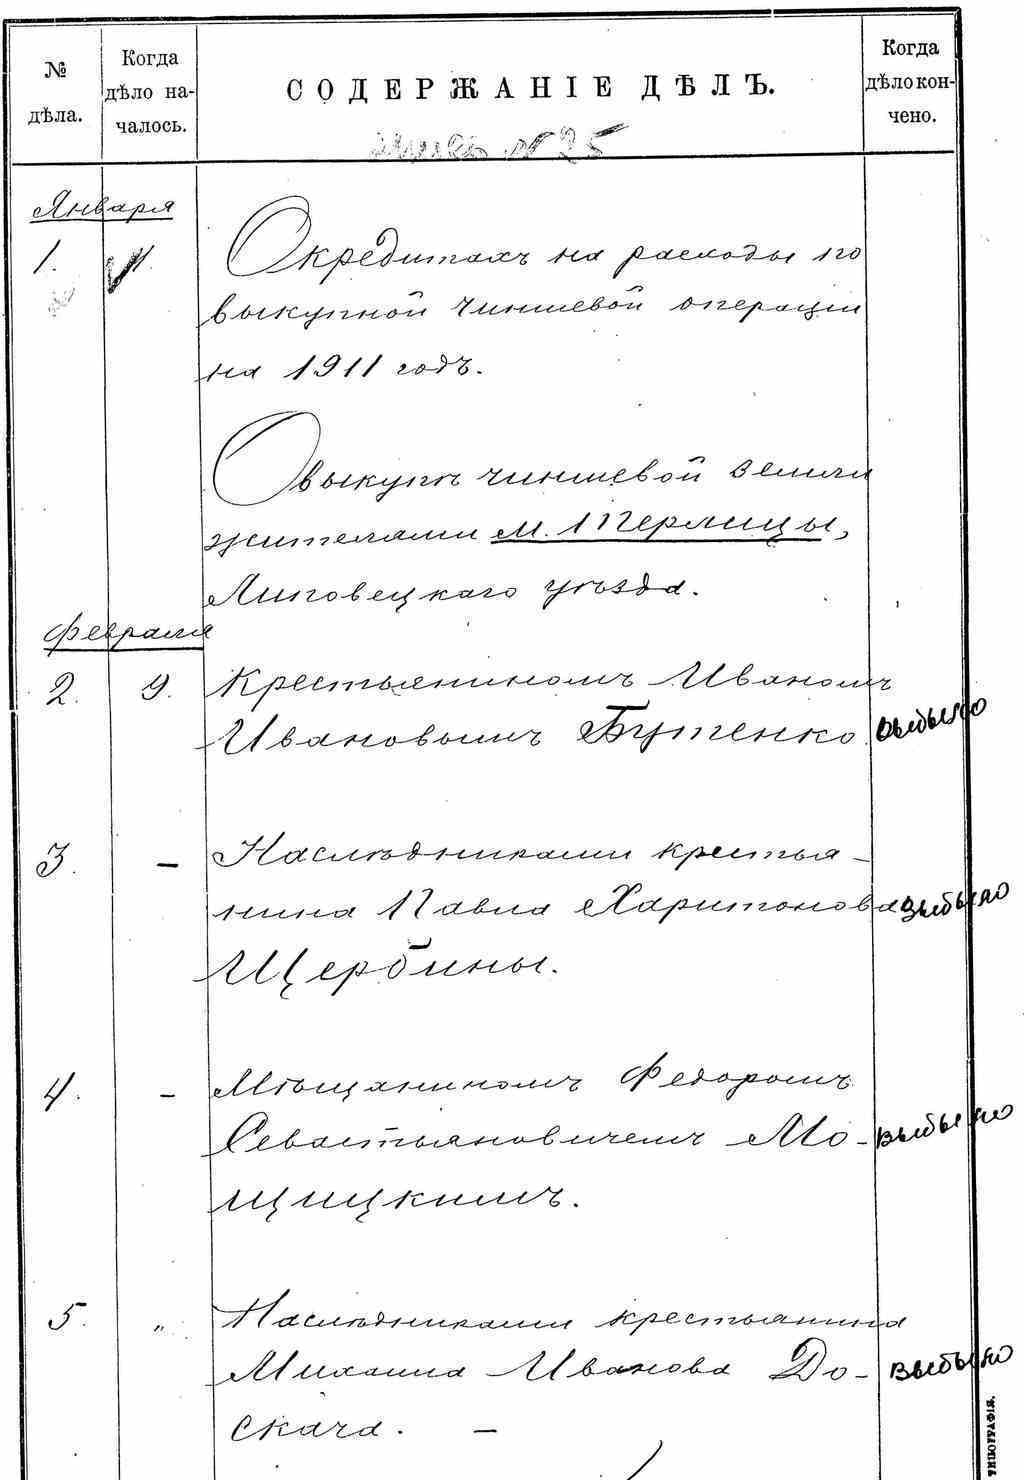 № дѣла.
Когда дѣло на-чалось.
СОДЕРЖАНІЕ ДѢЛЪ.
Когда дѣло кон-чено.
№ 25
Января
1. 11
О кредитахъ на расходы по
выкупной чиншевой операціи
на 1911 годъ.
О выкупѣ чиншевой земли
жителями м. Перлицы,
Липовецкаго уѣзда.
Февраля
2. 9. Крестьяниномъ Иваномъ
Ивановымъ Бутенко выбыло
3. — Наслѣдниками крестья-
нина Павла Харитонова выбыло
Щербины.
4. – Мѣщаниномъ Федоромъ
Севастьяновичемъ Мо- выбыло
щицкимъ.
5. „ Наслѣдниками крестьянина
Михаила Иванова До- выбыло
скача. —
ТИПОГРАФІЯ.